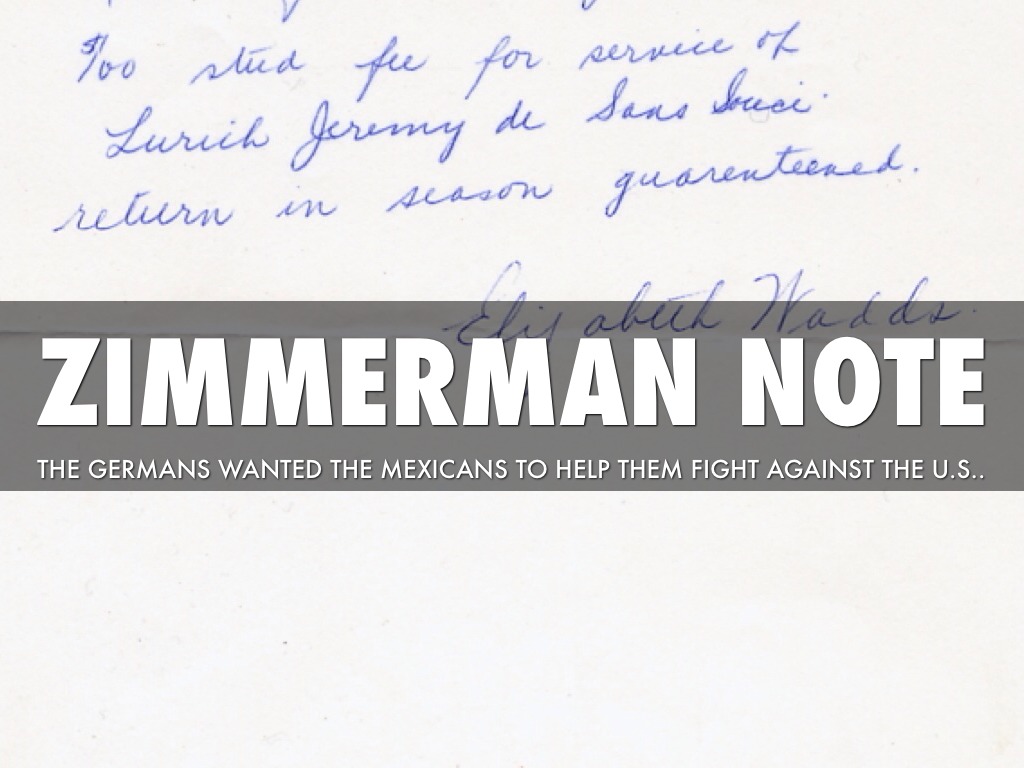 $100 stud fee for service of
Lurich Jeremy de Sans Souci.
return in season guarenteened.
Elizabeth Wadds.
ZIMMERMAN NOTE
THE GERMANS WANTED THE MEXICANS TO HELP THEM FIGHT AGAINST THE U.S..